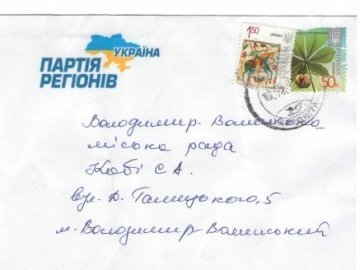 УКРАЇНА
ПАРТІЯ
РЕГІОНІВ
1.50
50
Володимир-Волинська
міська рада
Кобі С А.
вул. Д. Галицького, 5
м. Володимир-Волинський